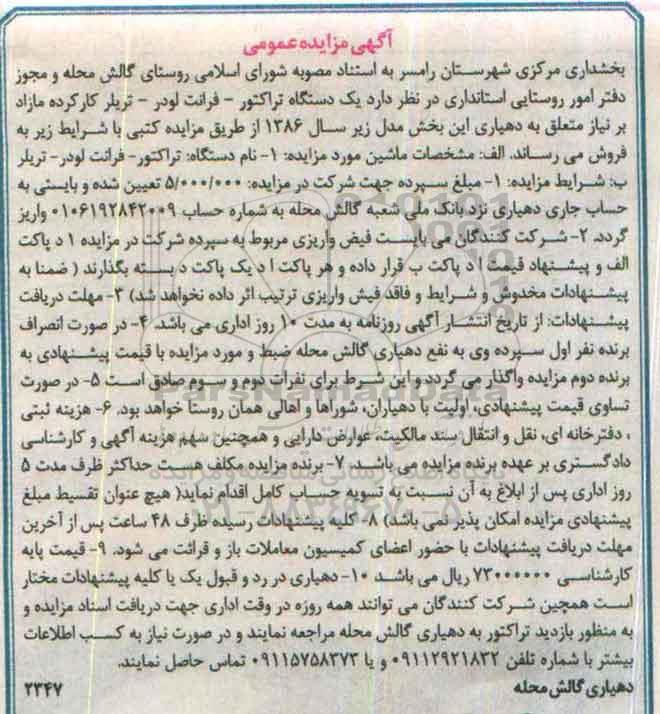 آگهی مزایده عمومی
بخشداری مرکزی شهرستان رامسر به استناد مصوبه شورای اسلامی روستای گالش محله و مجوز
دفتر امور روستایی استانداری در نظر دارد یک دستگاه تراکتور - فرانت لودر - تریلر کارکرده مازاد
بر نیاز متعلق به دهیاری این بخش مدل زیر سال ۱۳۸۶ از طریق مزایده کتبی با شرایط زیر به
فروش می رساند. الف: مشخصات ماشین مورد مزایده: ۱- نام دستگاه: تراکتور- فرانت لودر- تریلر
ب: شرایط مزایده: ۱- مبلغ سپرده جهت شرکت در مزایده: ۵/۰۰۰/۰۰۰ تعیین شده و بایستی به
حساب جاری دهیاری نزد بانک ملی شعبه گالش محله به شماره حساب ۰۱۰۶۱۹۲۸۴۲۰۰۹ واریز
گردد. ۲- شرکت کنندگان می بایست فیض واریزی مربوط به سپرده شرکت در مزایده ا د پاکت
الف و پیشنهاد قیمت ا د پاکت ب قرار داده و هر پاکت ا د یک پاکت د بسته بگذارند ( ضمنا به
پیشنهادات مخدوش و شرایط و فاقد فیش واریزی ترتیب اثر داده نخواهد شد) ۳- مهلت دریافت
پیشنهادات: از تاریخ انتشار آگهی روزنامه به مدت ۱۰ روز اداری می باشد. ۴- در صورت انصراف
برنده نفر اول سپرده وی به نفع دهیاری گالش محله ضبط و مورد مزایده با قیمت پیشنهادی به
برنده دوم مزایده واگذار می گردد و این شرط برای نفرات دوم و سوم صادق است ۵- در صورت
تساوی قیمت پیشنهادی، اولیت با دهیاران، شوراها و اهالی همان روستا خواهد بود. ۶- هزینه ثبتی
، دفترخانه ای، نقل و انتقال سند مالکیت، عوارض دارایی و همچنین سهم هزینه آگهی و کارشناسی
دادگستری بر عهده برنده مزایده می باشد. ۷- برنده مزایده مکلف هست حداکثر ظرف مدت ۵
روز اداری پس از ابلاغ به آن نسبت به تسویه حساب کامل اقدام نماید( هیچ عنوان تقسیط مبلغ
پیشنهادی مزایده امکان پذیر نمی باشد) ۸- کلیه پیشنهادات رسیده ظرف ۴۸ ساعت پس از آخرین
مهلت دریافت پیشنهادات با حضور اعضای کمیسیون معاملات باز و قرائت می شود. ۹- قیمت پایه
کارشناسی ۷۳۰۰۰۰۰۰ ریال می باشد ۱۰- دهیاری در رد و قبول یک یا کلیه پیشنهادات مختار
است همچین شرکت کنندگان می توانند همه روزه در وقت اداری جهت دریافت اسناد مزایده و
به منظور بازدید تراکتور به دهیاری گالش محله مراجعه نمایند و در صورت نیاز به کسب اطلاعات
بیشتر با شماره تلفن ۰۹۱۱۲۹۲۱۸۳۲ و یا ۰۹۱۱۵۷۵۸۳۷۳ تماس حاصل نمایند.
دهیاری گالش محله
۲۳۴۷
ParsNamadData